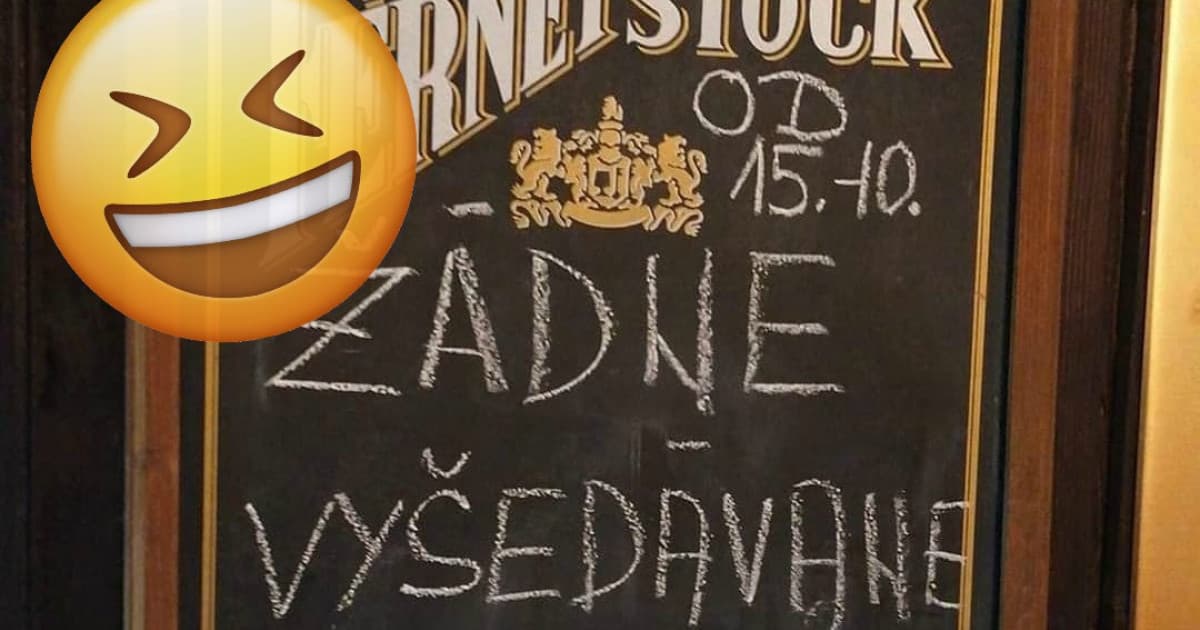 ERNET STOCK
OD
15.-10.
ŽÁDNE
VYŠEDÁVANE